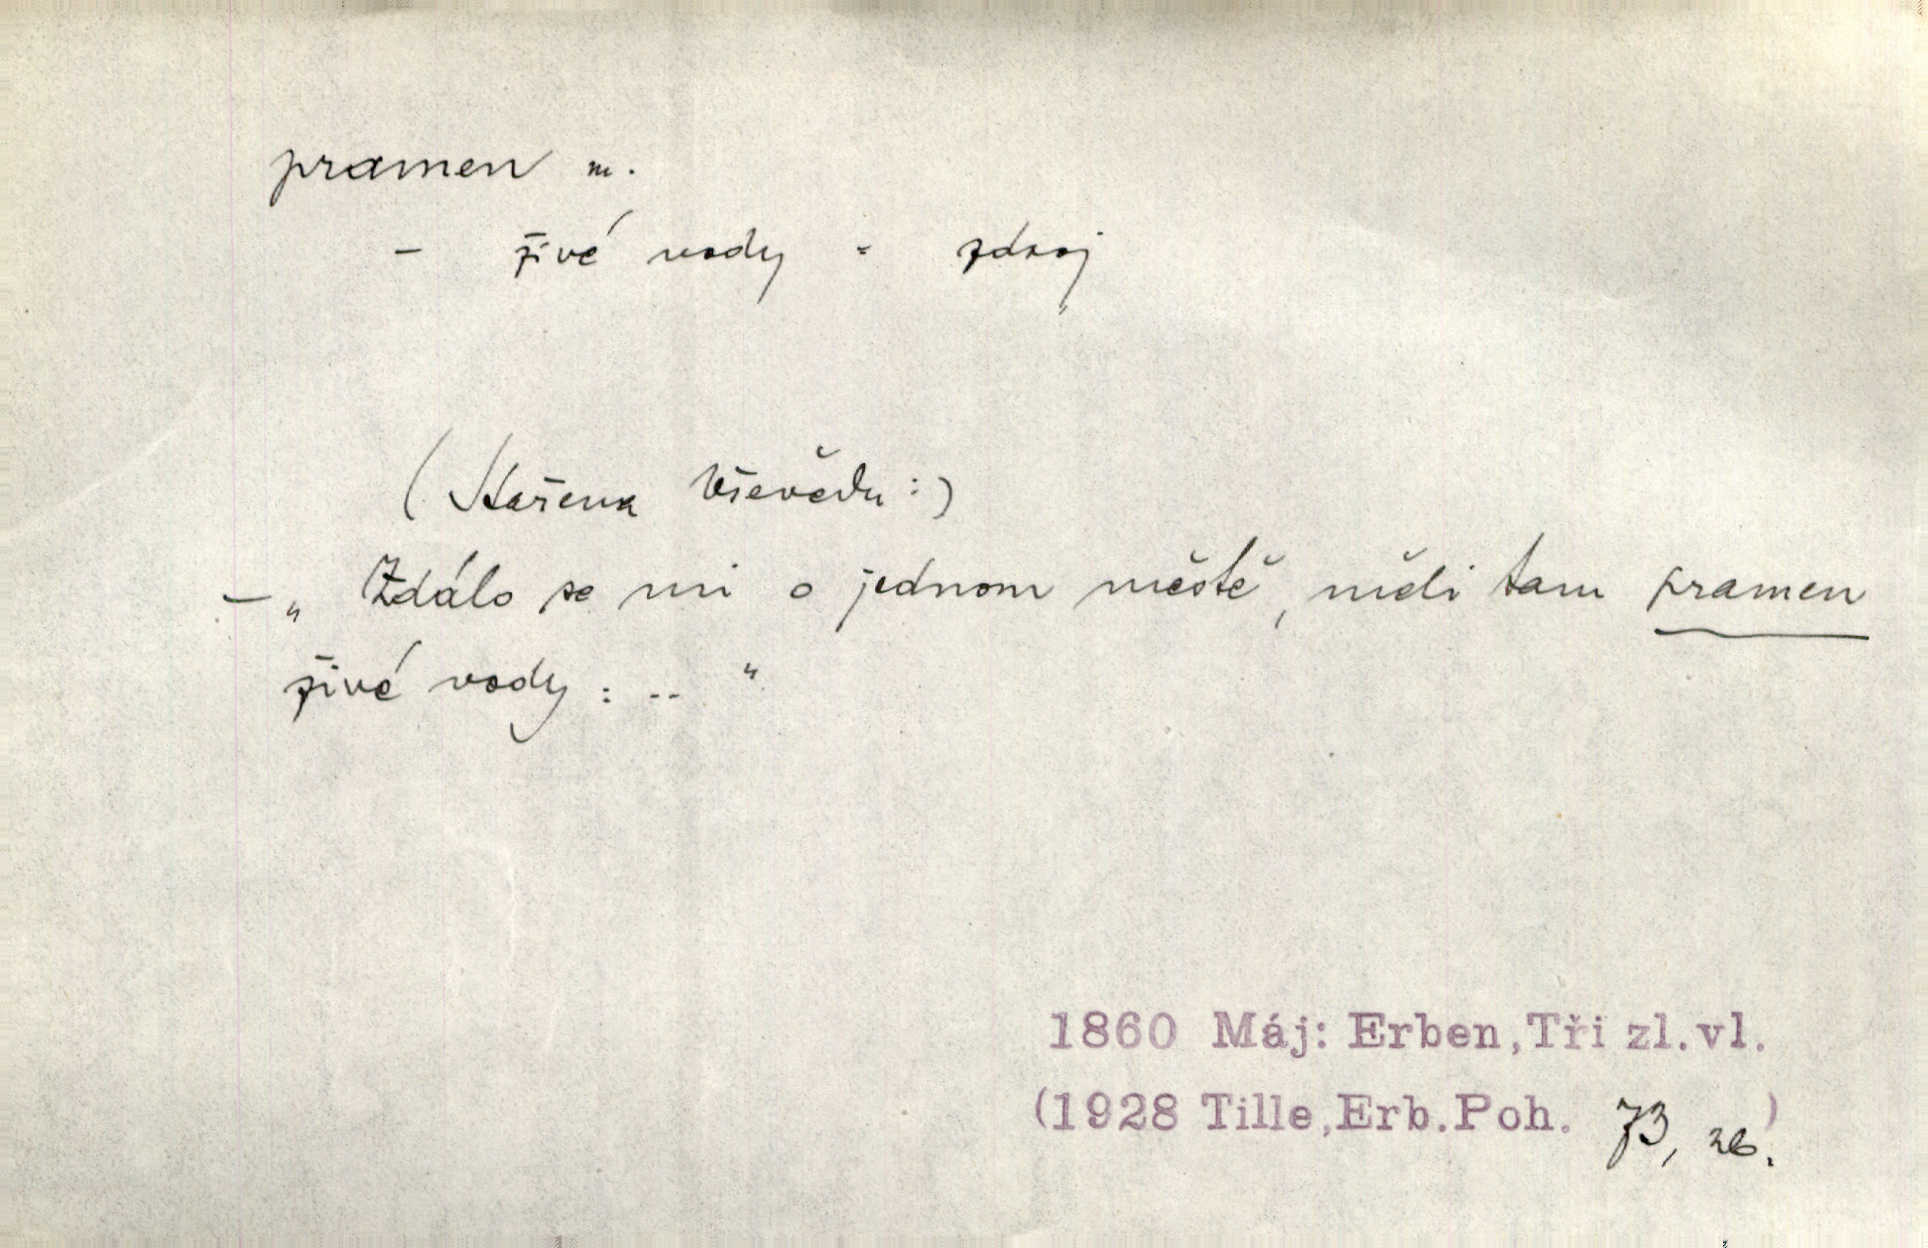 pramen m.
- živé vody = zdroj
(Stařena Vševědu:)
- „Zdálo se mi o jednom městě, měli tam pramen
živé vody: .. "
1860 Máj: Erben, Tři zl. vl.
(1928 Tille, Erb. Poh. 73, 26.)